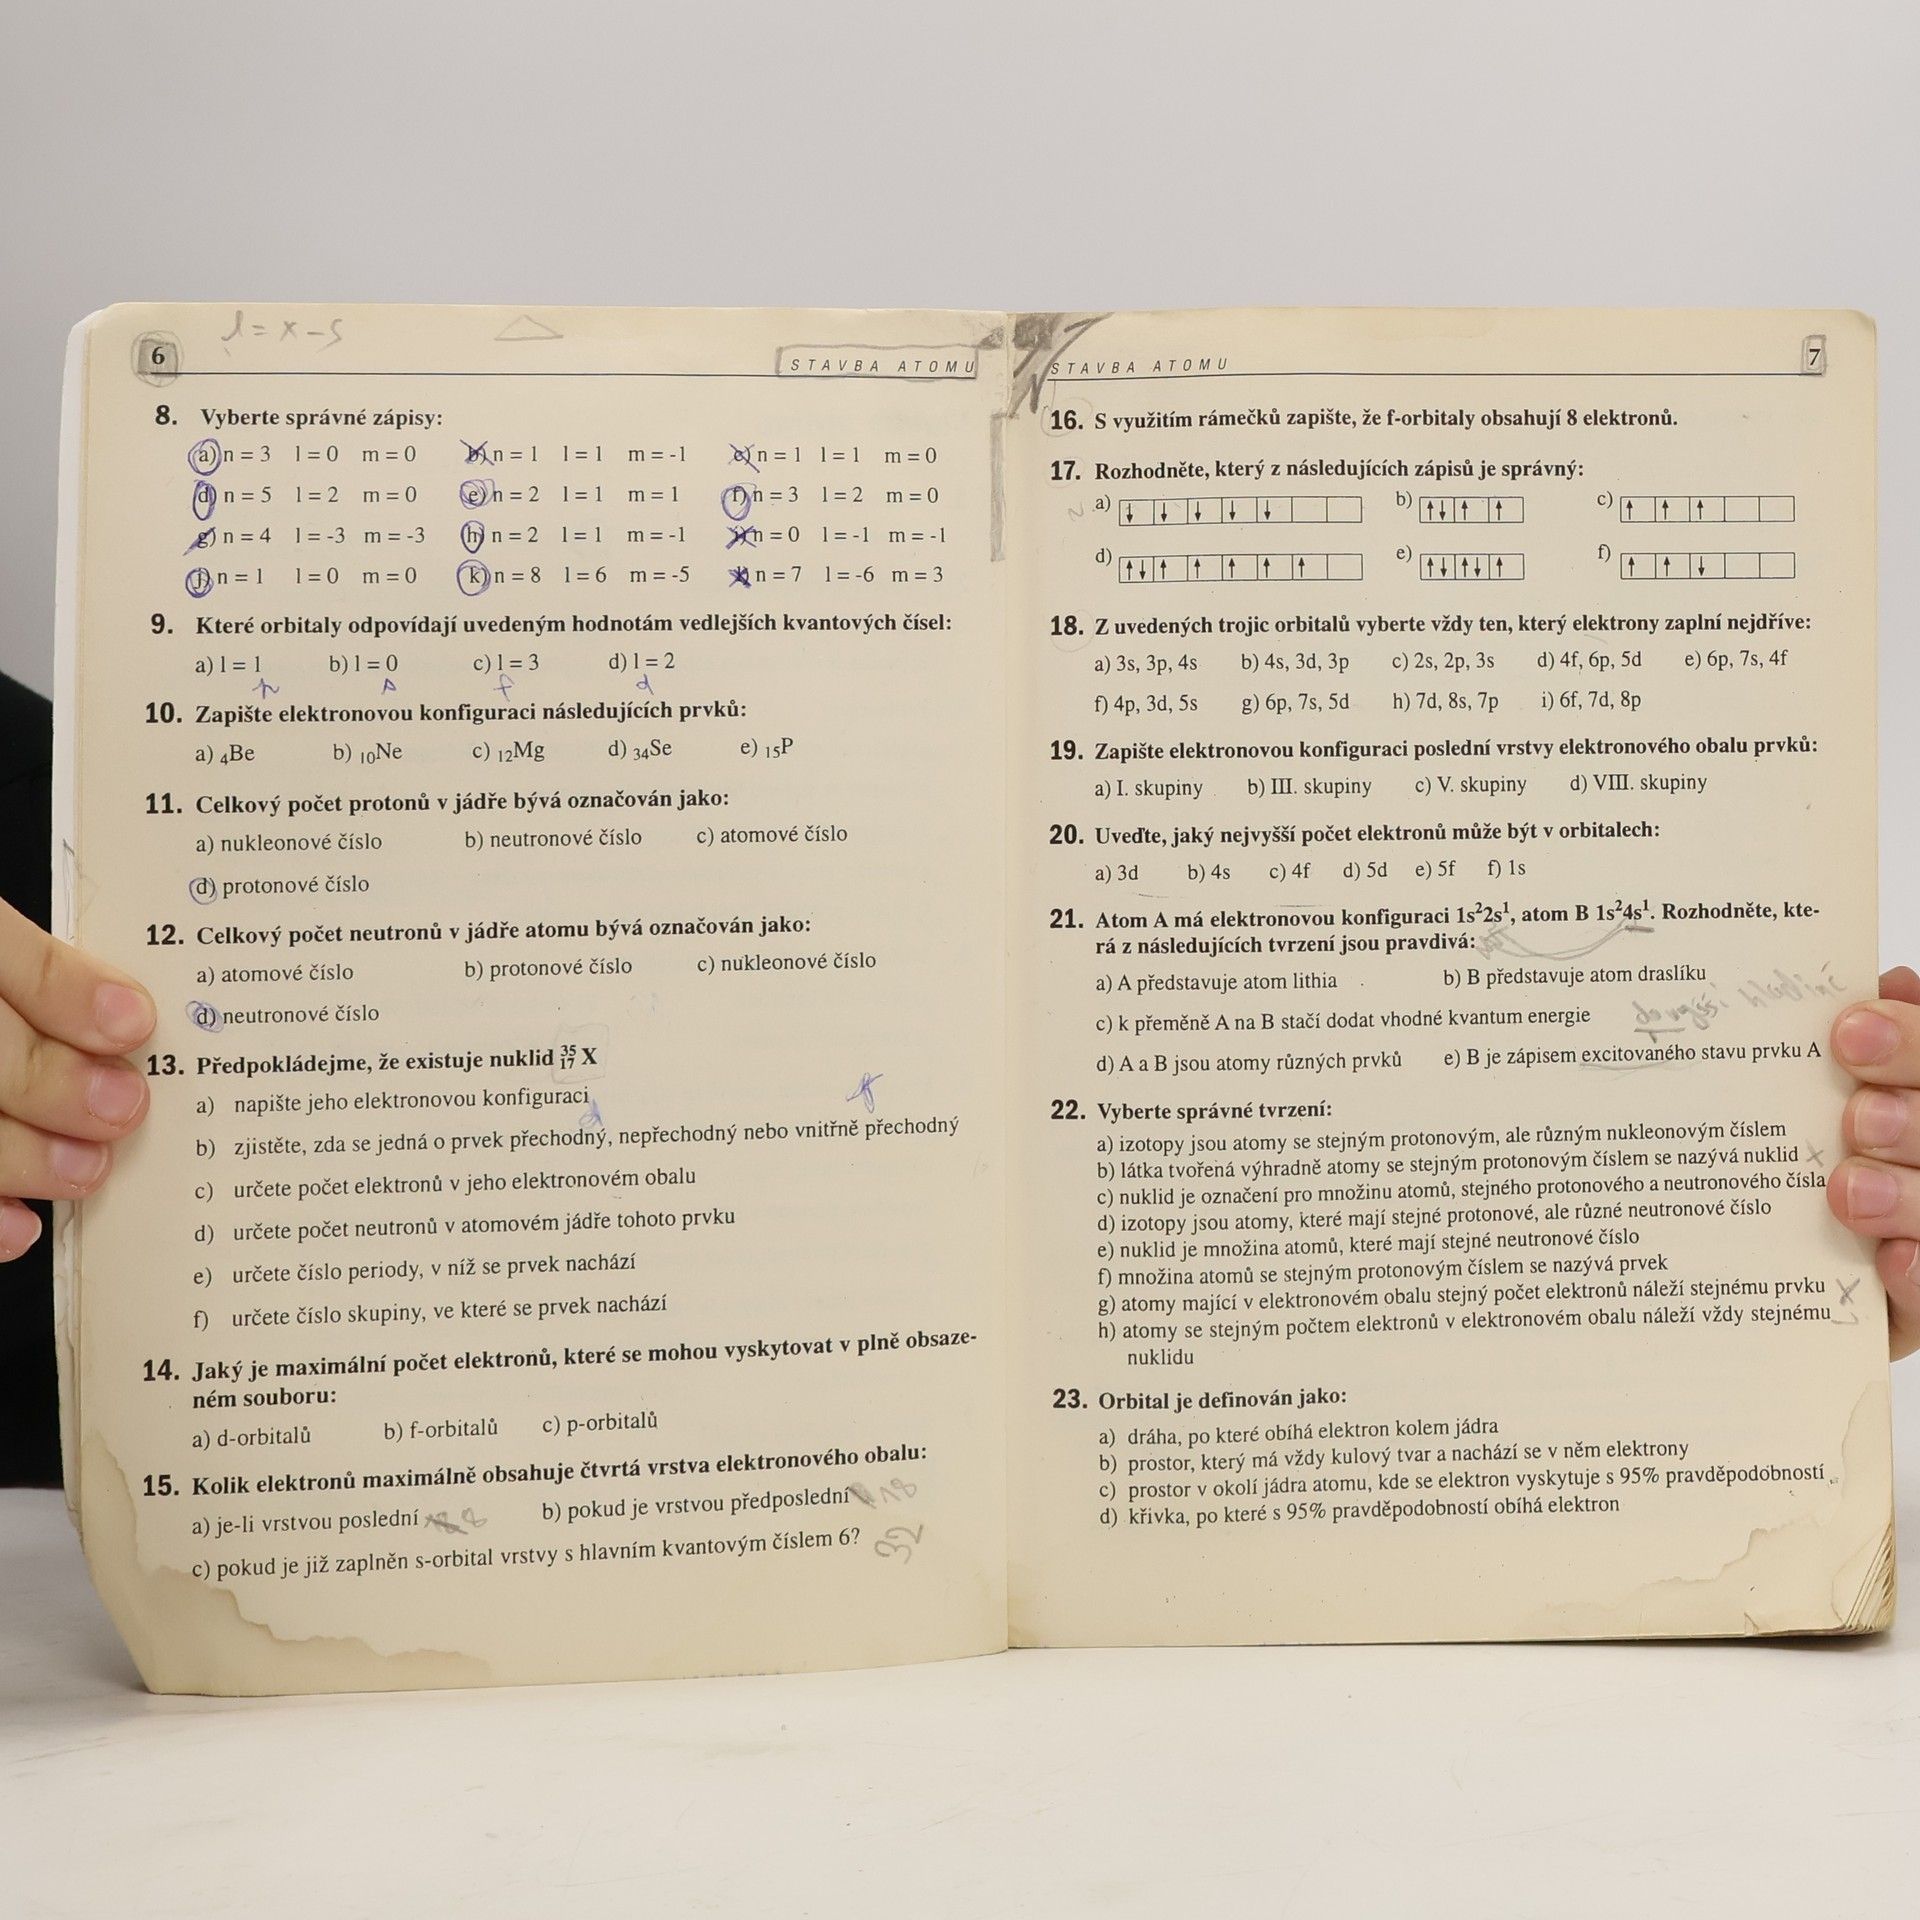 l = x - 5
6
STAVBA ATOMU
8. Vyberte správné zápisy:
a) n = 3 l = 0 m = 0 b) n = 1 l = 1 m = -1 c) n = 1 l = 1 m = 0
d) n = 5 l = 2 m = 0 e) n = 2 l = 1 m = 1 f) n = 3 l = 2 m = 0
g) n = 4 l = -3 m = -3 h) n = 2 l = 1 m = -1 i) n = 0 l = -1 m = -1
j) n = 1 l = 0 m = 0 k) n = 8 l = 6 m = -5 n = 7 l = -6 m = 3
9. Které orbitaly odpovídají uvedeným hodnotám vedlejších kvantových čísel:
a) l = 1 b) l = 0 c) l = 3 d) l = 2
p s f d
10. Zapište elektronovou konfiguraci následujících prvků:
a) ₄Be b) ₁₀Ne c) ₁₂Mg d) ₃₄Se e) ₁₅P
11. Celkový počet protonů v jádře bývá označován jako:
a) nukleonové číslo b) neutronové číslo c) atomové číslo
d) protonové číslo
12. Celkový počet neutronů v jádře atomu bývá označován jako:
a) atomové číslo b) protonové číslo c) nukleonové číslo
d) neutronové číslo
13. Předpokládejme, že existuje nuklid ³⁵₁₇X
a) napište jeho elektronovou konfiguraci
d f
b) zjistěte, zda se jedná o prvek přechodný, nepřechodný nebo vnitřně přechodný
c) určete počet elektronů v jeho elektronovém obalu
d) určete počet neutronů v atomovém jádře tohoto prvku
e) určete číslo periody, v níž se prvek nachází
f) určete číslo skupiny, ve které se prvek nachází
14. Jaký je maximální počet elektronů, které se mohou vyskytovat v plně obsaze-
ném souboru:
a) d-orbitalů b) f-orbitalů c) p-orbitalů
15. Kolik elektronů maximálně obsahuje čtvrtá vrstva elektronového obalu:
a) je-li vrstvou poslední 8 b) pokud je vrstvou předposlední 18
c) pokud je již zaplněn s-orbital vrstvy s hlavním kvantovým číslem 6? 32
STAVBA ATOMU
7
16. S využitím rámečků zapište, že f-orbitaly obsahují 8 elektronů.
17. Rozhodněte, který z následujících zápisů je správný:
a) ↓ ↓ ↓ ↓ ↓ b) ↑↓ ↑ ↑ c) ↑ ↑ ↑
d) ↑↓ ↑ ↑ ↑ ↑ ↑ e) ↑↓ ↑↓ ↑ f) ↑ ↑ ↓
18. Z uvedených trojic orbitalů vyberte vždy ten, který elektrony zaplní nejdříve:
a) 3s, 3p, 4s b) 4s, 3d, 3p c) 2s, 2p, 3s d) 4f, 6p, 5d e) 6p, 7s, 4f
f) 4p, 3d, 5s g) 6p, 7s, 5d h) 7d, 8s, 7p i) 6f, 7d, 8p
19. Zapište elektronovou konfiguraci poslední vrstvy elektronového obalu prvků:
a) I. skupiny b) III. skupiny c) V. skupiny d) VIII. skupiny
20. Uveďte, jaký nejvyšší počet elektronů může být v orbitalech:
a) 3d b) 4s c) 4f d) 5d e) 5f f) 1s
21. Atom A má elektronovou konfiguraci 1s²2s¹, atom B 1s²4s¹. Rozhodněte, kte-
rá z následujících tvrzení jsou pravdivá:
a) A představuje atom lithia b) B představuje atom draslíku
c) k přeměně A na B stačí dodat vhodné kvantum energie
d) A a B jsou atomy různých prvků e) B je zápisem excitovaného stavu prvku A
22. Vyberte správné tvrzení:
a) izotopy jsou atomy se stejným protonovým, ale různým nukleonovým číslem
b) látka tvořená výhradně atomy se stejným protonovým číslem se nazývá nuklid
c) nuklid je označení pro množinu atomů, stejného protonového a neutronového čísla
d) izotopy jsou atomy, které mají stejné protonové, ale různé neutronové číslo
e) nuklid je množina atomů, které mají stejné neutronové číslo
f) množina atomů se stejným protonovým číslem se nazývá prvek
g) atomy mající v elektronovém obalu stejný počet elektronů náleží stejnému prvku
h) atomy se stejným počtem elektronů v elektronovém obalu náleží vždy stejnému
nuklidu
23. Orbital je definován jako:
a) dráha, po které obíhá elektron kolem jádra
b) prostor, který má vždy kulový tvar a nachází se v něm elektrony
c) prostor v okolí jádra atomu, kde se elektron vyskytuje s 95% pravděpodobností
d) křivka, po které s 95% pravděpodobností obíhá elektron